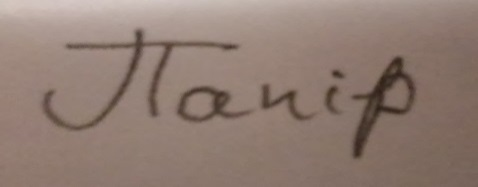 Папір